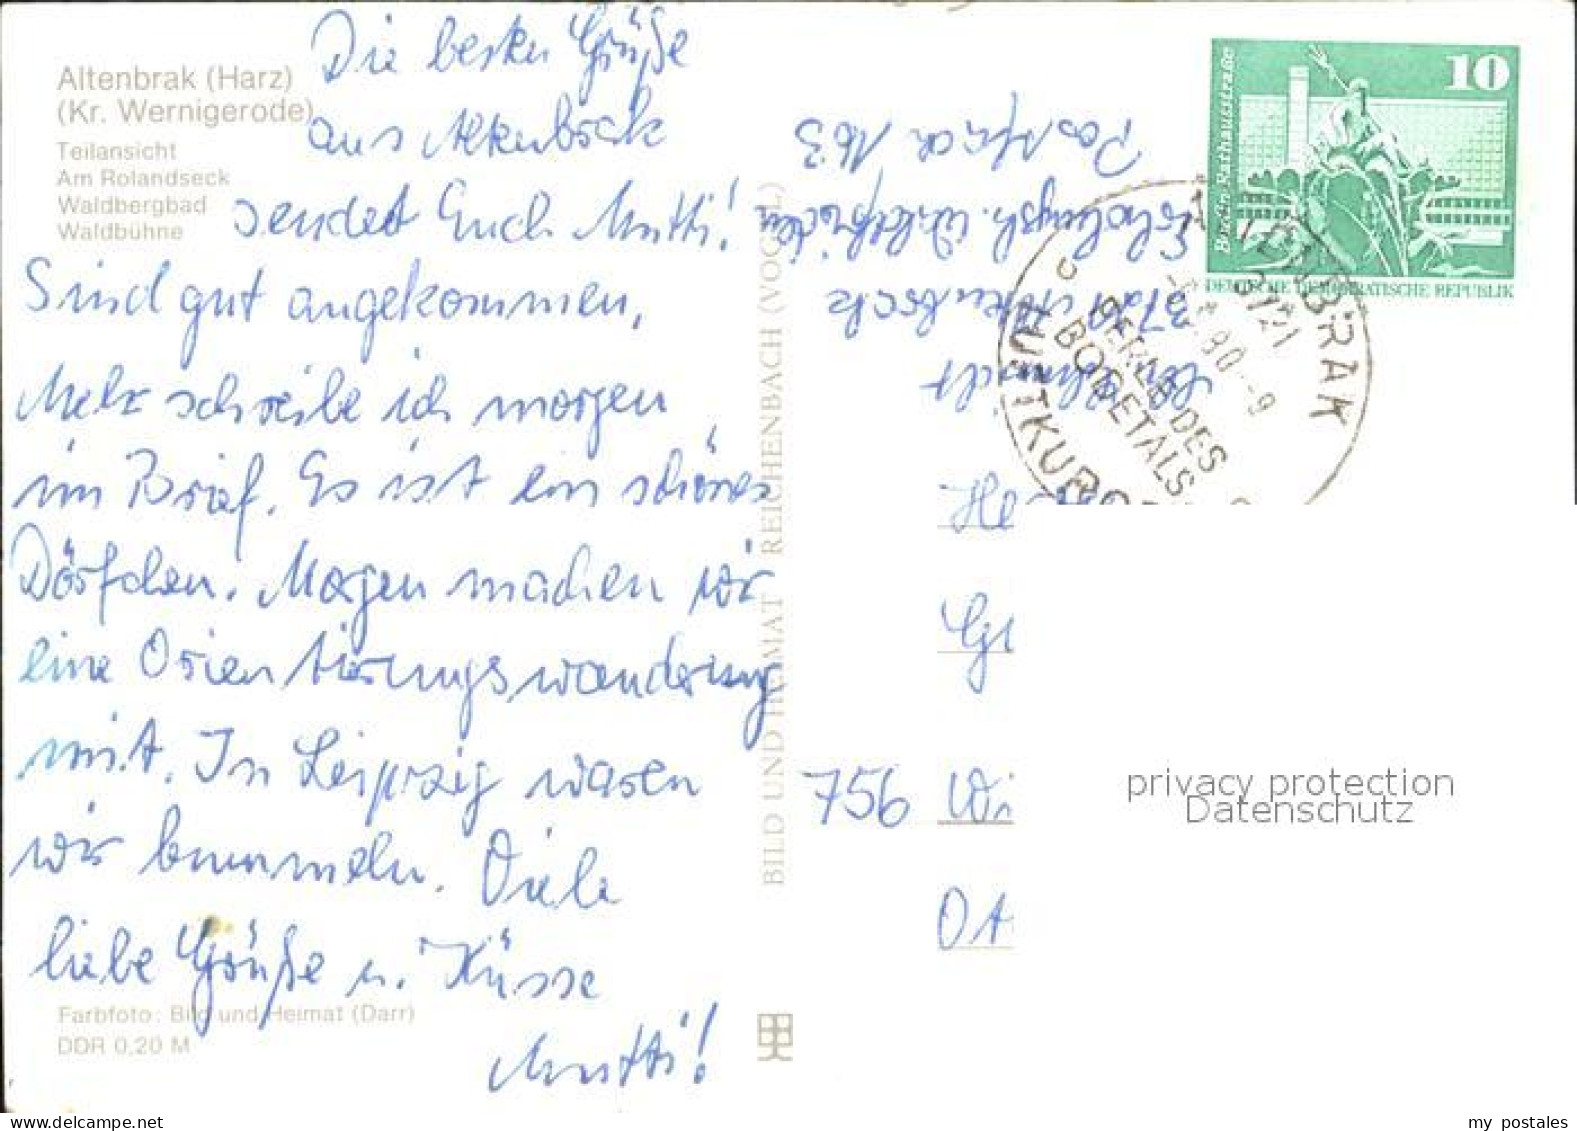 Altenbrak (Harz)
(Kr. Wernigerode)
Teilansicht
Am Rolandseck
Waldbergbad
Waldbühne
Die besten Grüße
aus Altenbrak
sendet Euch Mutti!
Sind gut angekommen,
Mehr schreibe ich morgen
im Brief. Es ist ein schönes
Dörfchen. Morgen machen wir
eine Orientierungswanderung
mit. In Leipzig waren
wir bummeln. Viele
liebe Grüße u. Küsse
Mutti!
Farbfoto: Bild und Heimat (Darr)
DDR 0,20 M
BILD UND HEIMAT REICHENBACH (VOGTL)
Postfach
Erholungsh. Waldfrieden
Altenbrak
10
Berlin, Rathausstraße
DEUTSCHE DEMOKRATISCHE REPUBLIK
ALTENBRAK
3721
90-9
PERLE DES
BODETALS
LUFTKURO
He
Gu
756 Wi
OA
privacy protection
Datenschutz
my postales